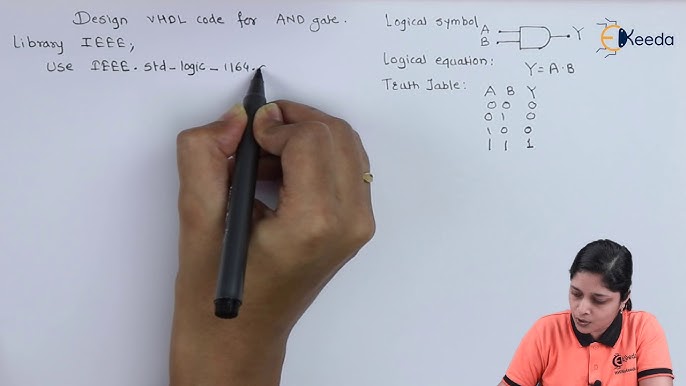 Design VHDL code for AND gate.
Library IEEE;
Use IEEE.std_logic_1164.
Logical symbol
A
B
Y
Logical equation: Y=A·B
Truth Table:
A B Y
0 0 0
0 1 0
1 0 0
1 1 1
EKeeda
EKeeda